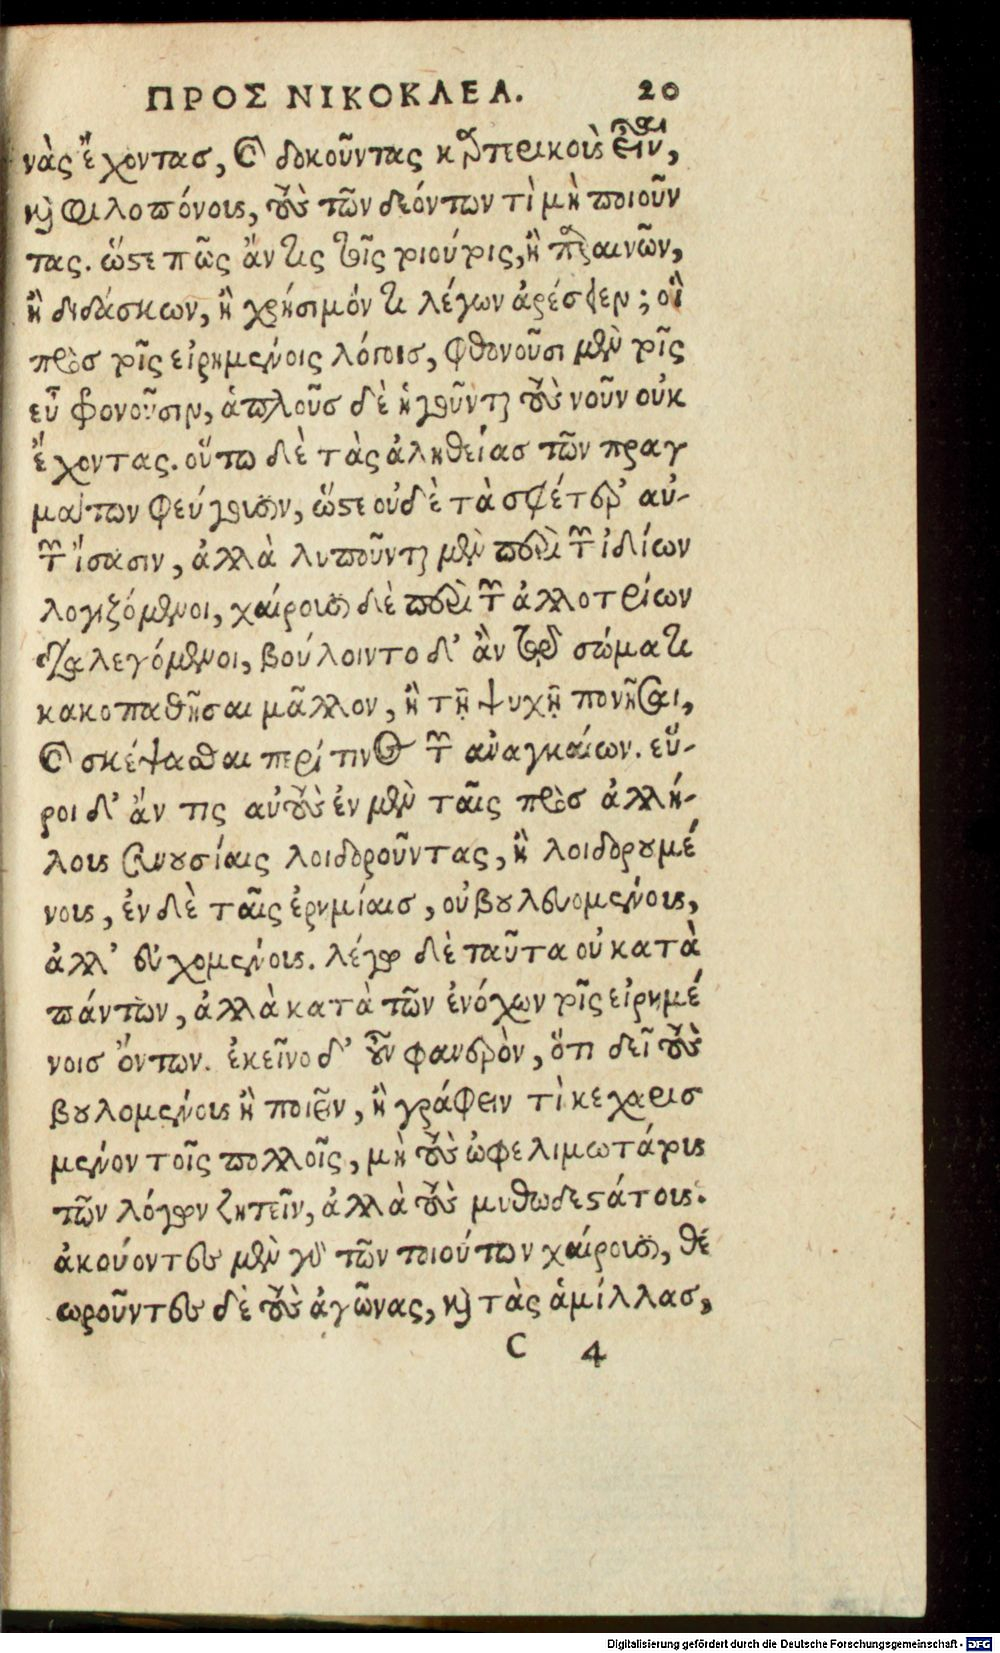 ΠΡΟΣ ΝΙΚΟΚΛΕΑ. 20
νὰς ἔχοντασ, καὶ δοκοῦντας καρτερικοὺς εἶναι,
καὶ φιλοπόνους, τοὺς τῶν δεόντων τὶ μὴ ποιοῦν
τας. ὥστε πῶς ἄν τις τοῖς τοιούτοις, ἢ παραινῶν,
ἢ διδάσκων, ἢ χρήσιμόν τι λέγων ἀρέσειεν; οἳ
πρὸσ τοῖς εἰρημένοις λόγοισ, φθονοῦσι μὲν τοῖς
εὖ φρονοῦσιν, ἁπλοῦσ δὲ ἡγοῦνται τοὺς νοῦν οὐκ
ἔχοντας. οὕτω δὲ τὰς ἀληθείασ τῶν πραγ
μάτων φεύγουσιν, ὥστε οὐδὲ τὰ σφέτερ' αὐ-
τῶν ἴσασιν, ἀλλὰ λυποῦνται μὲν περὶ τῶν ἰδίων
λογιζόμενοι, χαίρουσι δὲ περὶ τῶν ἀλλοτρίων
διαλεγόμενοι, βούλοιντο δ' ἂν τῷ σώματι
κακοπαθῆσαι μᾶλλον, ἢ τῇ ψυχῇ πονῆσαι,
καὶ σκέψασθαι περί τινος τῶν αναγκαίων. εὕ-
ροι δ' ἄν τις αὐτοὺς ἐν μὲν ταῖς πρὸσ ἀλλή-
λους συνουσίαις λοιδοροῦντας, ἢ λοιδορουμέ
νους, ἐν δὲ ταῖς ἐρημίαισ, οὐ βουλευομένους,
ἀλλ' εὐχομένους. λέγω δὲ ταῦτα οὐ κατὰ
πάντων, ἀλλὰ κατὰ τῶν ἐνόχων τοῖς εἰρημέ
νοισ ὄντων. ἐκεῖνο δ' οὖν φανερὸν, ὅτι δεῖ τοὺς
βουλομένους ἢ ποιεῖν, ἢ γράφειν τὶ κεχαρισ
μένον τοῖς πολλοῖς, μὴ τοὺς ὠφελιμωτάτους
τῶν λόγων ζητεῖν, ἀλλὰ τοὺς μυθωδεστάτους.
ἀκούοντες μὲν γὰρ τῶν τοιούτων χαίρουσι, θε
ωροῦντες δὲ τοὺς ἀγῶνας, καὶ τὰς ἁμίλλασ,
C 4
Digitalisierung gefördert durch die Deutsche Forschungsgemeinschaft - DFG